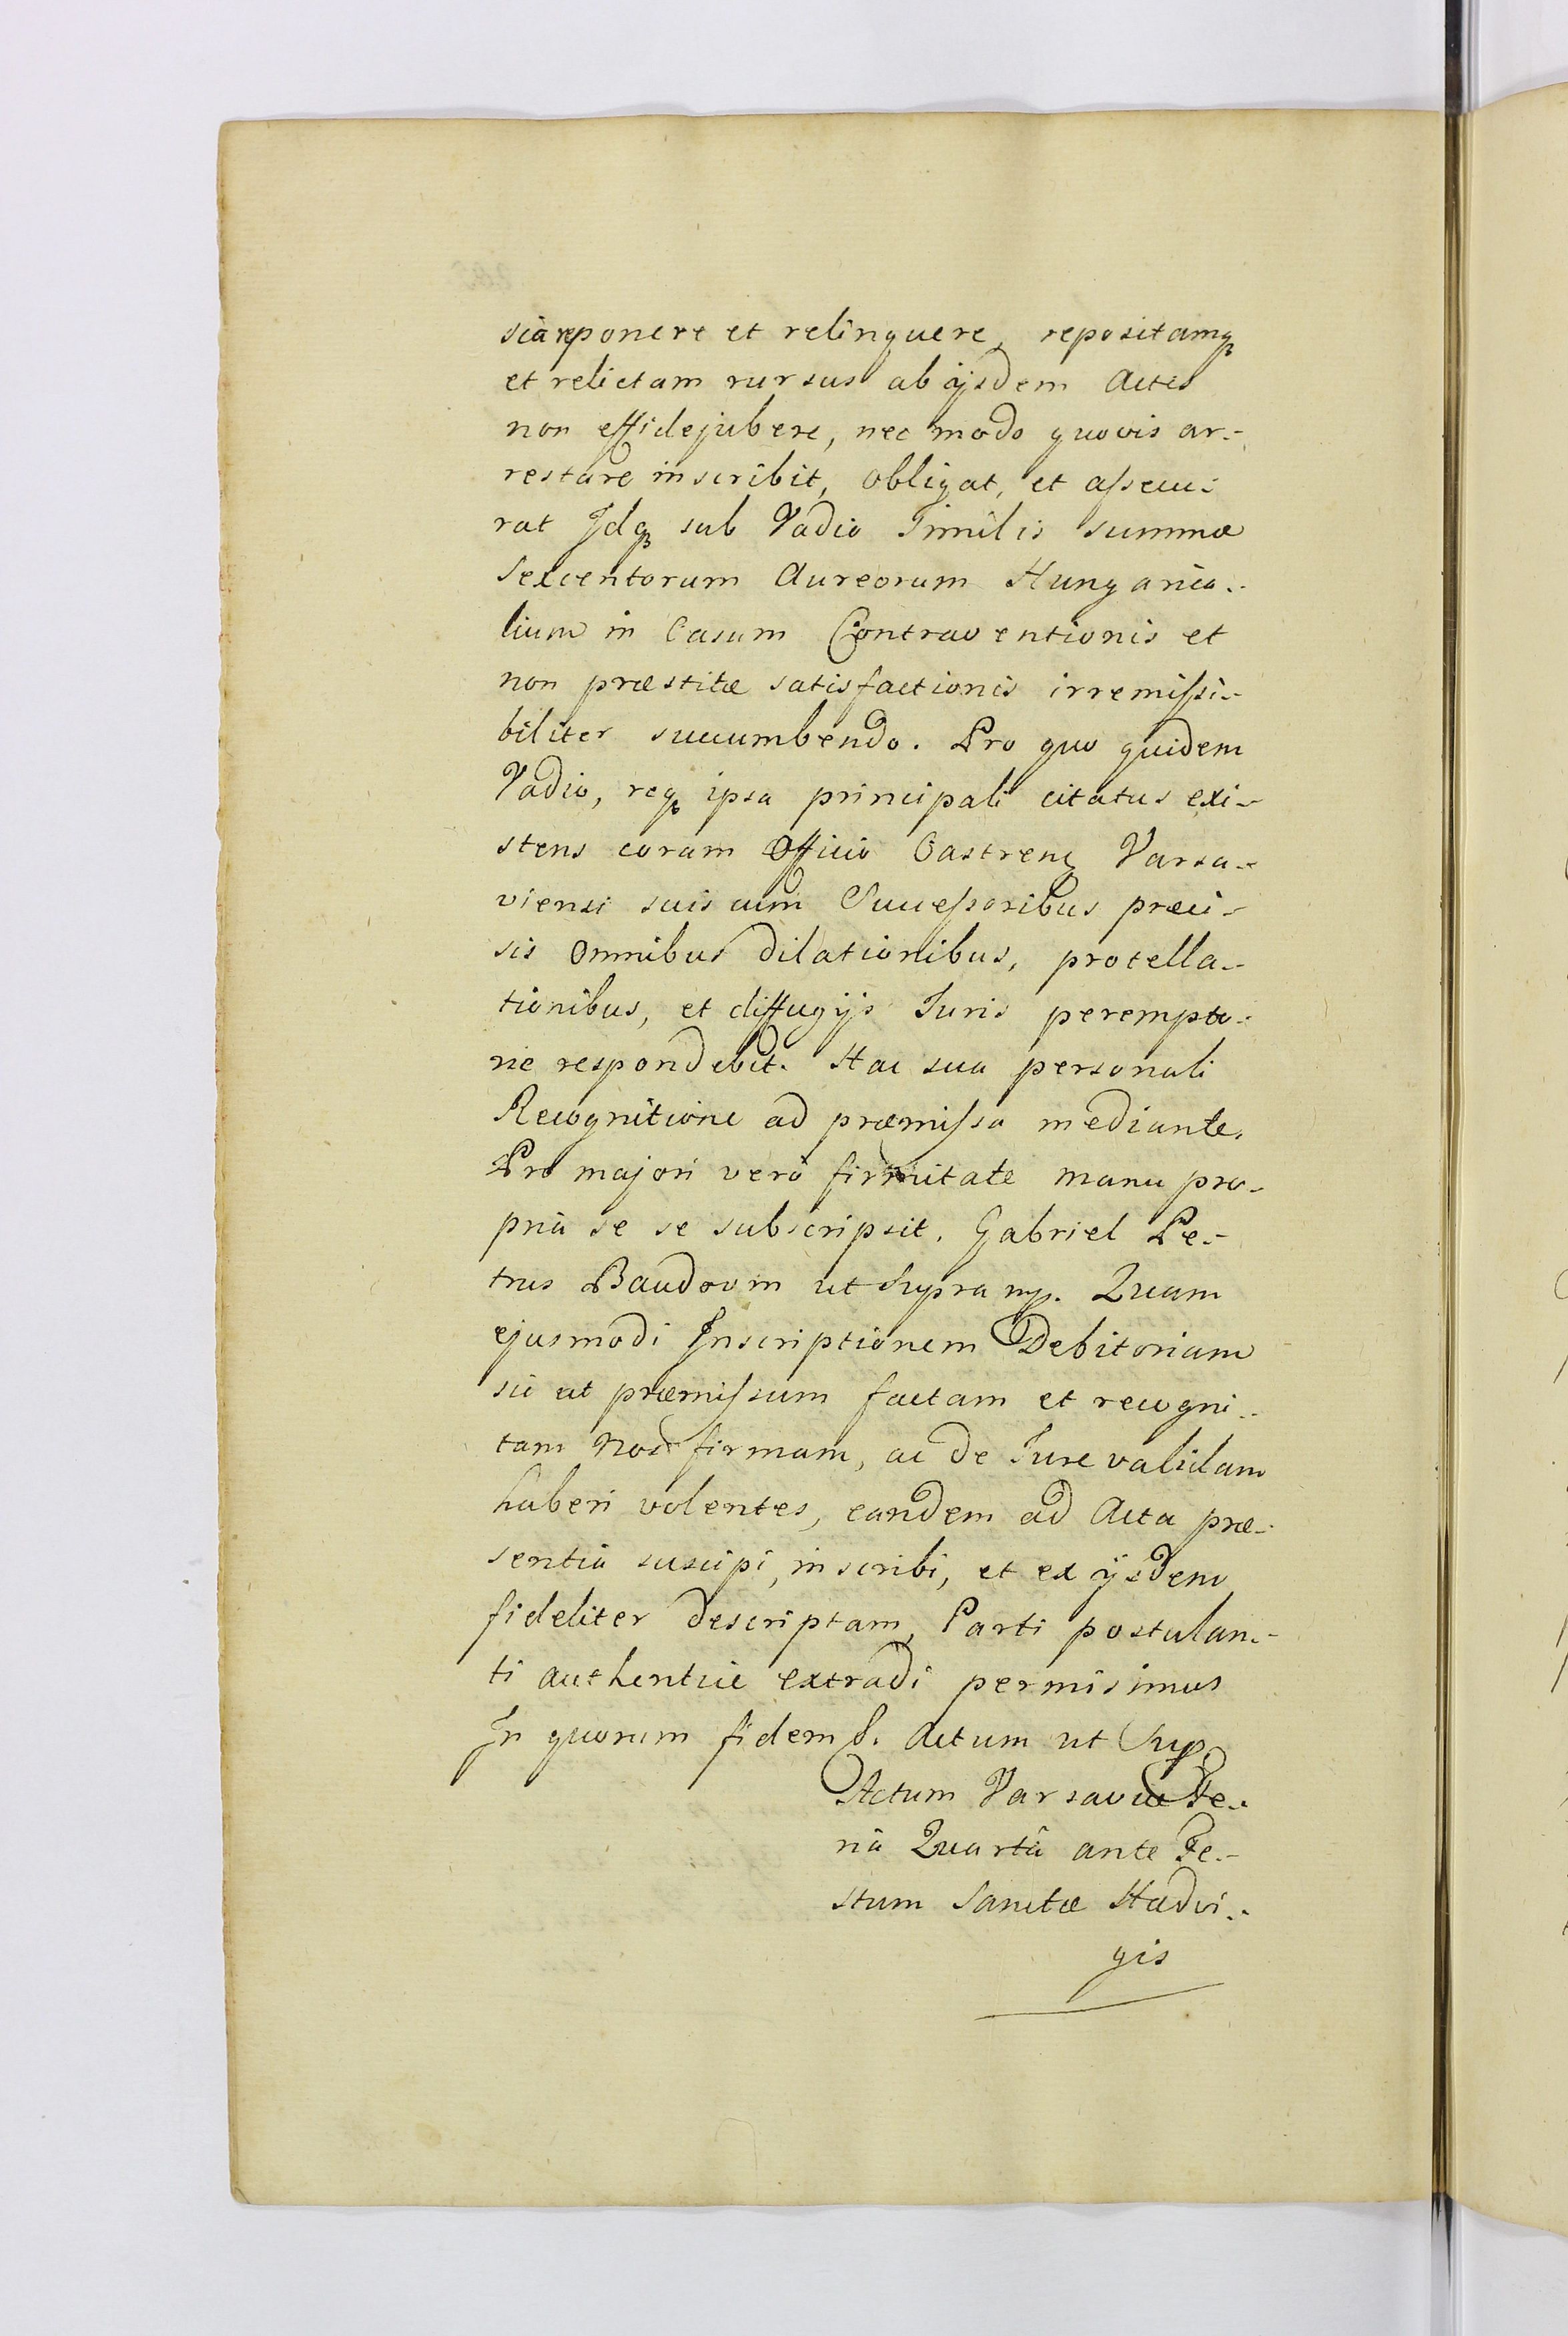 sia reponere et relinquere, repositamq
et relictam rursus ab ijsdem Actis
non effidejubere, nec modo quovis ar-
restare inscribit, obligat, et assecu-
rat Idq sub Vadio Similis summæ
Sexcentorum Aureorum Hungarica-
lium in Casum Contraventionis et
non præstitæ satisfactionis irremissi-
biliter succumbendo. Pro quo quidem
Vadio, req ipsa principali citatus exi-
stens coram Officio Castren Varsa-
viensi suis cum Successoribus præci-
sis omnibus dilationibus, protella-
tionibus, et diffugijs Iuris perempto-
rie respondebit. Hac sua personali
Recognitione ad præmissa mediante.
Pro majori verò firmitate manu pro-
pria se se subscripsit. Gabriel Pe-
trus Baudovin ut Supra mp. Quam
ejusmodi Inscriptionem Debitoriam
sic ut præmissum factam et recogni-
tam Nos firmam, ac de Iure validam
haberi volentes, eandem ad Acta præ-
sentia suscipi, inscribi, et ex ijsdem
fideliter descriptam, Parti postulan-
ti authentice extradi permisimus
In quorum fidem S. Actum ut Sup.
Actum Varsaviæ Fe-
riâ Quartâ ante Fe-
stum Sanctæ Hædvi-
gis